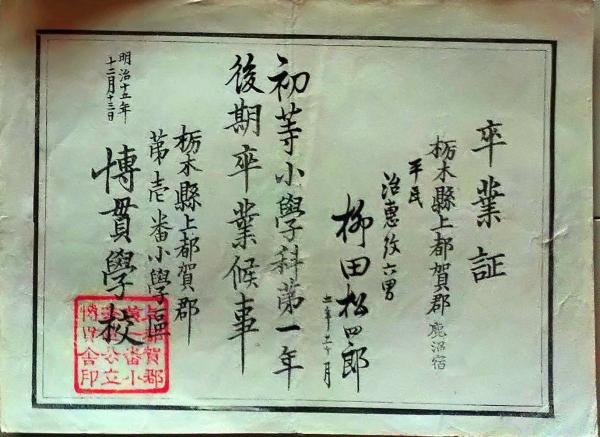 卒業証
栃木縣上都賀郡鹿沼宿
平民
治惠改六男
柳田松四郎
初等小學科第一年
後期卒業候事
栃木縣上都賀郡
第壱番小學區
博貫學校
明治十五年
十二月十三日